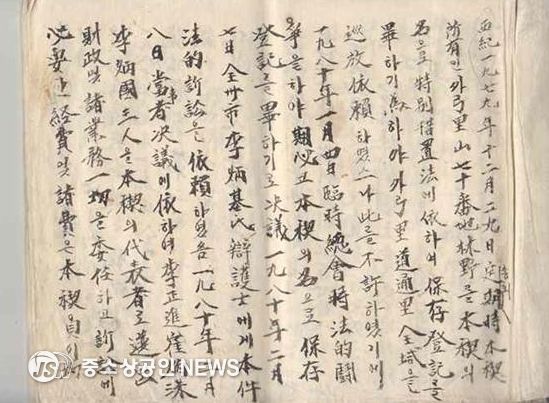 西紀一九七九年十二月二九日定期總會時本稧
所有인外弓里山七十番地林野를本稧의
名으로特別措置法에依하여保存登記를
畢하기爲하야外弓里道通里全域을
巡放依賴하였으나此를不許하였기에
一九八十年一月四日臨時總會時法的鬪
爭을하야期必코本稧의名으로保存
登記를畢하기로決議一九八十年二月
七日全州市李炳基氏辯護士에게本件
法的訴訟을依賴하였음一九八十年 月
八日當者決議에依하여李正進崔 洙
李炳國三人을本稧의代表者로選
財政및諸業務一切을委任하고訴訟에
必要한経費및諸費는本稧員이
중소상공인NEWS